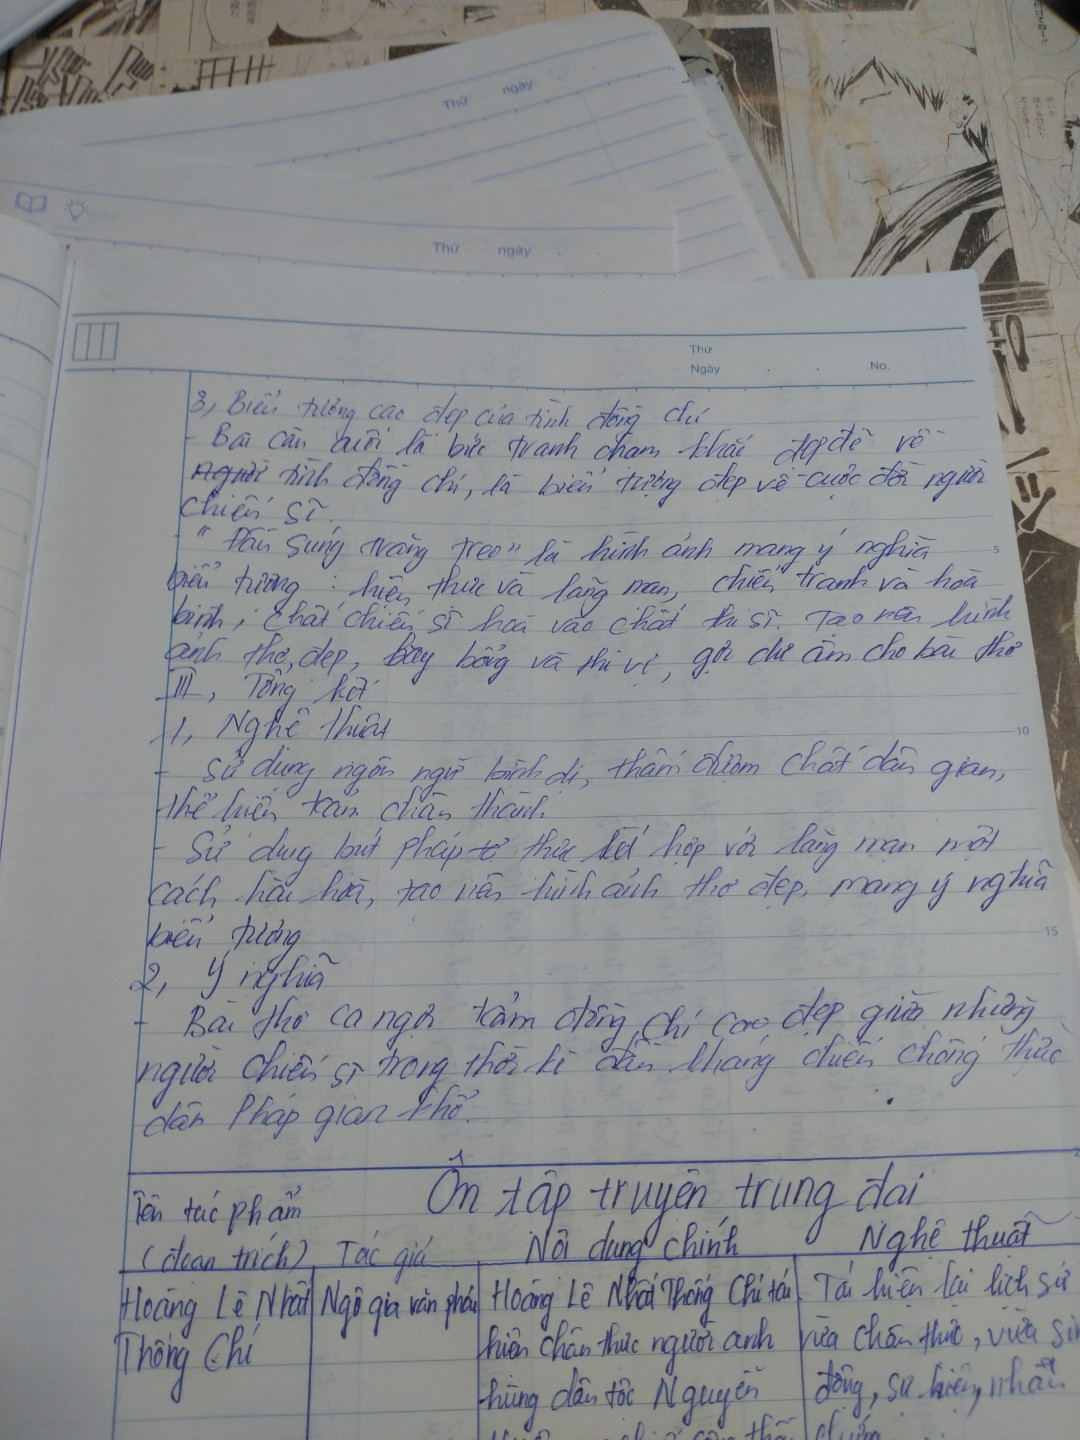 Thứ ngày
Thứ ngày
Thứ
Ngày No.
3, Biểu tượng cao đẹp của tình đồng chí
- Ba câu cuối là bức tranh chạm khắc đẹp đẽ về
tình đồng chí, là biểu tượng đẹp về cuộc đời người
chiến sĩ.
- "Đầu súng trăng treo" là hình ảnh mang ý nghĩa
5
biểu tượng: hiện thực và lãng mạn, chiến tranh và hoà
bình, chất chiến sĩ hoà vào chất thi sĩ. Tạo nên hình
ảnh thơ, đẹp, bay bổng và thi vị, gợi dư âm cho bài thơ
III, Tổng kết
1, Nghệ thuật
10
- Sử dụng ngôn ngữ bình dị, thấm đượm chất dân gian,
thể hiện chân thành.
- Sử dụng bút pháp tả thực kết hợp với lãng mạn một
cách hài hoà, tạo nên hình ảnh thơ đẹp, mang ý nghĩa
biểu tượng
15
2, Ý nghĩa
- Bài thơ ca ngợi đồng chí cao đẹp giữa những
người chiến sĩ trong thời kì đầu kháng chiến chống thực
dân Pháp gian khổ.
Ôn tập truyện trung đại
Tên tác phẩm
(đoạn trích) Tác giả Nội dung chính Nghệ thuật
Hoàng Lê Nhất Ngô gia văn phái Hoàng Lê Nhất Thống Chí tái Tái hiện lại lịch sử
Thống Chí hiện chân thực người anh vừa chân thực, vừa
hùng dân tộc Nguyễn động, sự kiện, nhân